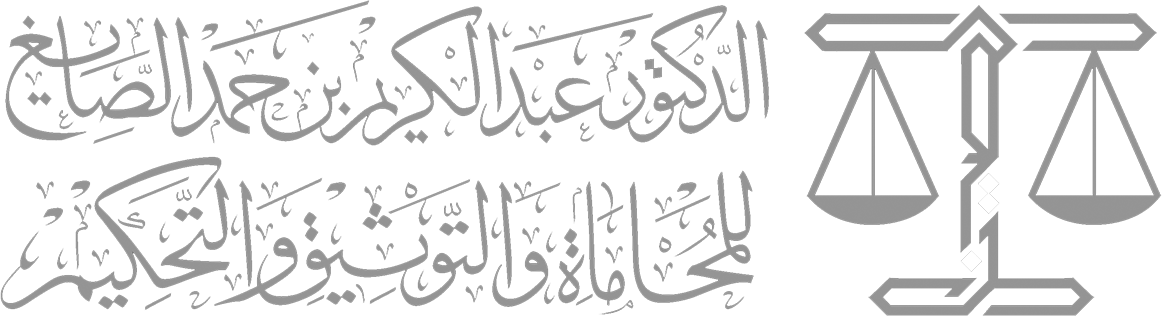 الدكتور عبدالكريم بن حمد الصايغ
للمحاماة والتوثيق والتحكيم